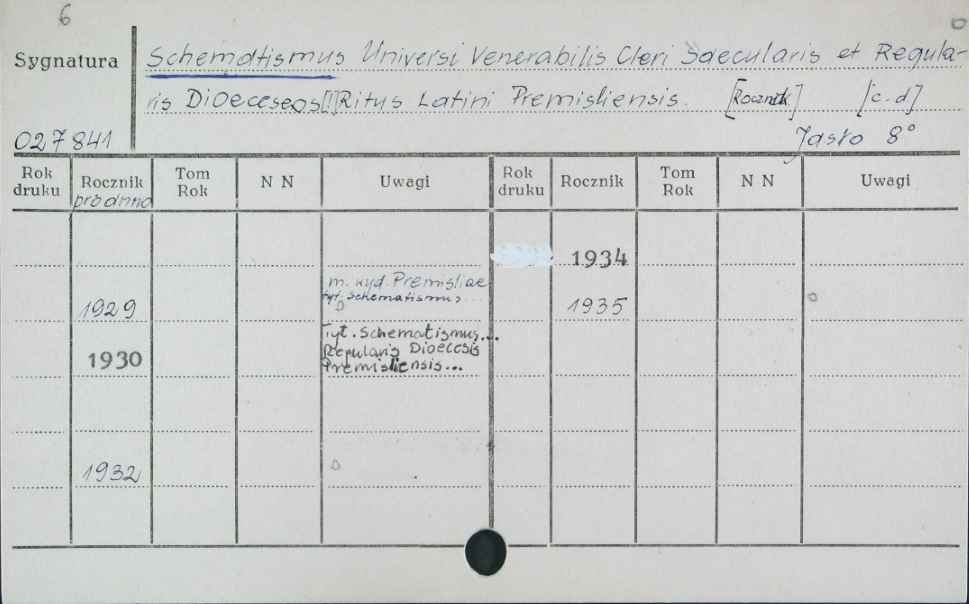 6
Sygnatura
Schematismus Universi Venerabilis Cleri Saecularis et Regula-
ris Dioeceseos[!] Ritus Latini Premisliensis. [Rocznik] [c.d]
027841
Jasło 8°
Rok druku Rocznik Tom Rok N N Uwagi Rok druku Rocznik Tom Rok N N Uwagi
1934
m. wyd. Premisliae
tyt. Schematismus...
1929
1935
Tyt. Schematismus...
Regularis Dioecesis
Premisliensis...
1930
1932